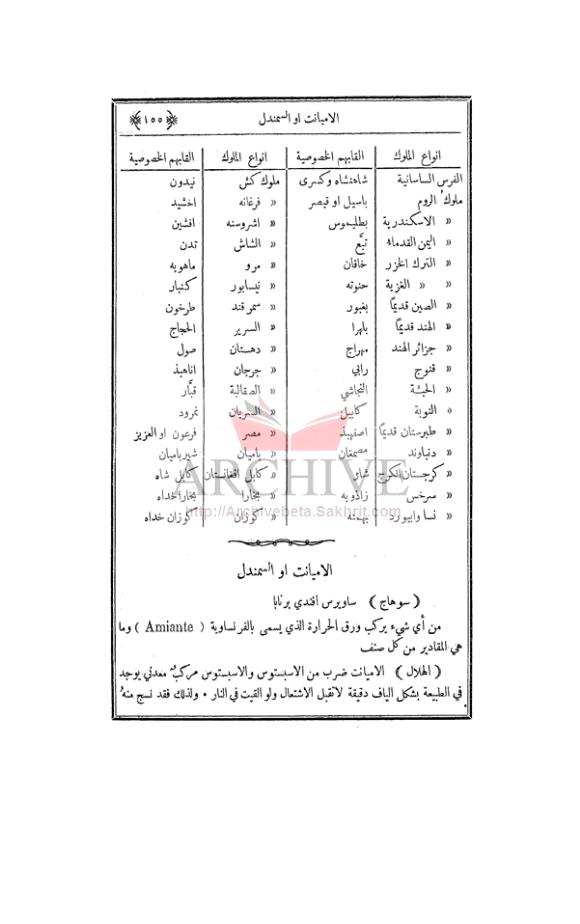 الاميانت او السمندل ﴿١٥٥﴾
انواع الملوك القابهم الخصوصية انواع الملوك القابهم الخصوصية
الفرس الساسانية شاهنشاه وكسرى ملوك كش نيدون
ملوك الروم باسيل او قيصر » فرغانه اخشيد
» الاسكندرية بطليموس » اشروسنه افشين
» اليمن القدماء تبَّع » الشاش تدن
» الترك الخزر خاقان » مرو ماهويه
» » الغزية حنوته » نيسابور كنبار
» الصين قديمًا بغبور » سمرقند طرخون
» الهند قديمًا بلهرا » السرير الحجاج
» جزائر الهند مهراج » دهستان صول
» قنوج رابي » جرجان اناهبذ
» الحبشة النجاشي » الصقالبة قبَّار
» النوبة كابيل » السريان نمرود
» طبرستان قديمًا اصفهبذ » مصر فرعون او العزيز
» دنباوند مصمغان » باميان شيرباميان
» كرجستان الكرج شائر » كابل افغانستان كابل شاه
» سرخس زادويه » بخارا بخاراخداه
» نسا وابيورد بهمنه » كوزان كوزان خداه
ARCHIVE
http://Archivebeta.Sakhrit.com
الاميانت او السمندل
( سوهاج ) ساويرس افندي برنابا
من أي شيء يركب ورق الحرارة الذي يسمى بالفرنساوية ( Amiante ) وما
هي المقادير من كل صنف
( الهلال ) الاميانت ضرب من الاسبستوس والاسبستوس مركبٌ معدني يوجد
في الطبيعة بشكل الياف دقيقة لا تقبل الاشتعال ولو القيت في النار ٠ ولذلك فقد نسج منهُ